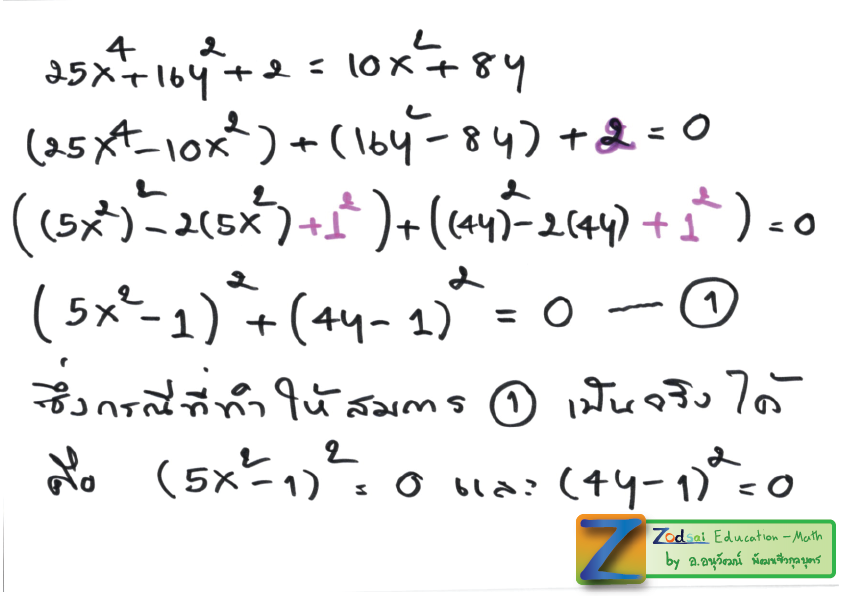 25x⁴+16y²+2 = 10x²+8y
(25x⁴-10x²)+(16y²-8y)+2=0
((5x²)²-2(5x²)+1²)+((4y)²-2(4y)+1²)=0
(5x²-1)²+(4y-1)²=0 — ①
ซึ่งกรณีที่ทำให้สมการ ① เป็นจริงได้
คือ (5x²-1)²=0 และ (4y-1)²=0
Zodsai Education-Math
by อ.อนุวัฒน์ พัฒนชัวกุลบุตร